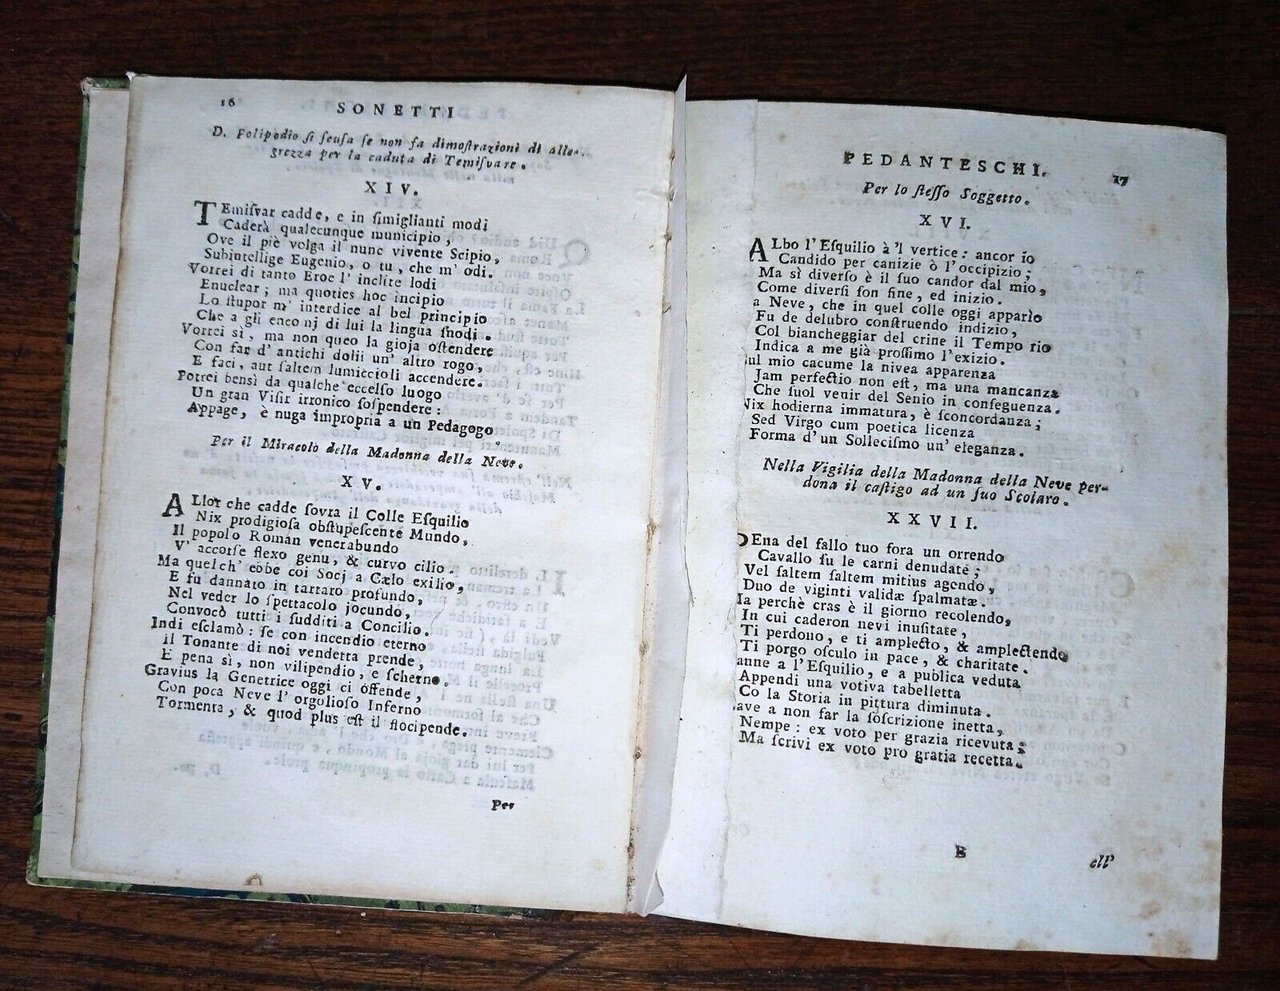 16
SONETTI
D. Polipodio ſi ſcuſa ſe non fa dimoſtrazioni di Alle-
grezza per la caduta di Temiſvare.
XIV.
TEmiſvar cadde, e in ſimiglianti modi
Caderà qualecunque municipio,
Ove il piè volga il nunc vivente Scipio,
Subintellige Eugenio, o tu, che m' odi.
Vorrei di tanto Eroe l' inclite lodi
Enuclear; ma quoties hoc incipio
Lo ſtupor m' interdice al bel principio
Che a gli enco nj di lui la lingua ſnodi.
Vorrei sì, ma non queo la gioja oſtendere
Con far d' antichi dolii un' altro rogo,
E faci, aut ſaltem lumiccioli accendere.
Potrei bensì da qualche eccelſo luogo
Un gran Viſir irronico ſoſpendere:
Appage, è nuga impropria a un Pedagogo.
Per il Miracolo della Madonna della Neve.
XV.
ALlor che cadde ſovra il Colle Eſquilio
Nix prodigioſa obſtupeſcente Mundo,
Il popolo Román venerabundo
V' accorſe flexo genu, & curvo cilio.
Ma quel ch' ebbe coi Socj a Cælo exilio,
E fu dannato in tartaro profundo,
Nel veder lo ſpettacolo jocundo,
Convocò tutti i ſudditi a Concilio.
Indi eſclamò: ſe con incendio eterno
il Tonante di noi vendetta prende,
E pena sì, non vilipendio, e ſcherno.
Gravius la Genetrice oggi ci offende,
Con poca Neve l' orgolioſo Inferno
Tormenta, & quod plus eſt il flocipende.
Per
PEDANTESCHI.
17
Per lo ſteſſo Soggetto.
XVI.
ALbo l'Eſquilio à 'l vertice: ancor io
Candido per canizie ò l'occipizio;
Ma sì diverſo è il ſuo candor dal mio,
Come diverſi ſon fine, ed inizio.
a Neve, che in quel colle oggi apparìo
Fu de delubro conſtruendo indizio,
Col biancheggiar del crine il Tempo rio
Indica a me già proſſimo l'exizio.
ul mio cacume la nivea apparenza
Jam perfectio non eſt, ma una mancanza
Che ſuol venir del Senio in conſeguenza.
Nix hodierna immatura, è ſconcordanza;
Sed Virgo cum poetica licenza
Forma d'un Solleciſmo un' eleganza.
Nella Vigilia della Madonna della Neve per-
dona il caſtigo ad un ſuo Scolaro.
XXVII.
PEna del fallo tuo fora un orrendo
Cavallo ſu le carni denudate;
Vel ſaltem ſaltem mitius agendo,
Duo de viginti validæ ſpalmatæ.
Ma perchè cras è il giorno recolendo,
In cui caderon nevi inuſitate,
Ti perdono, e ti amplecto, & amplectendo
Ti porgo oſculo in pace, & charitate.
anne a l'Eſquilio, e a publica veduta
Appendi una votiva tabelletta
Co la Storia in pittura diminuta.
ave a non far la ſòſcrizione inetta,
Nempe: ex voto per grazia ricevuta;
Ma scrivi ex voto pro gratia recetta.
B
ell'